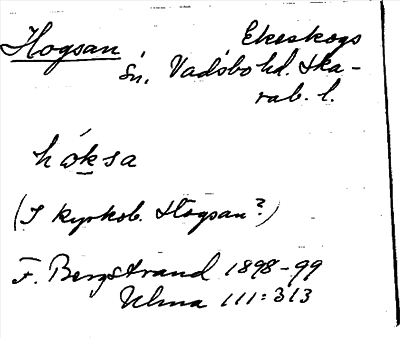 Hogsan Ekeskogs
sn. Vadsbo hd. Ska-
rab. l.
hóksa
(I kyrkob. Hogsan?)
F. Bergstrand 1898-99
Ulma 111:313